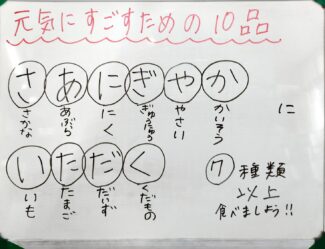 元気にすごすための10品
さあにぎやか に
さかな あぶら にく ぎゅうにゅう やさい かいそう
いただく
いも たまご だいず くだもの
7 種類
以上
食べましょう!!